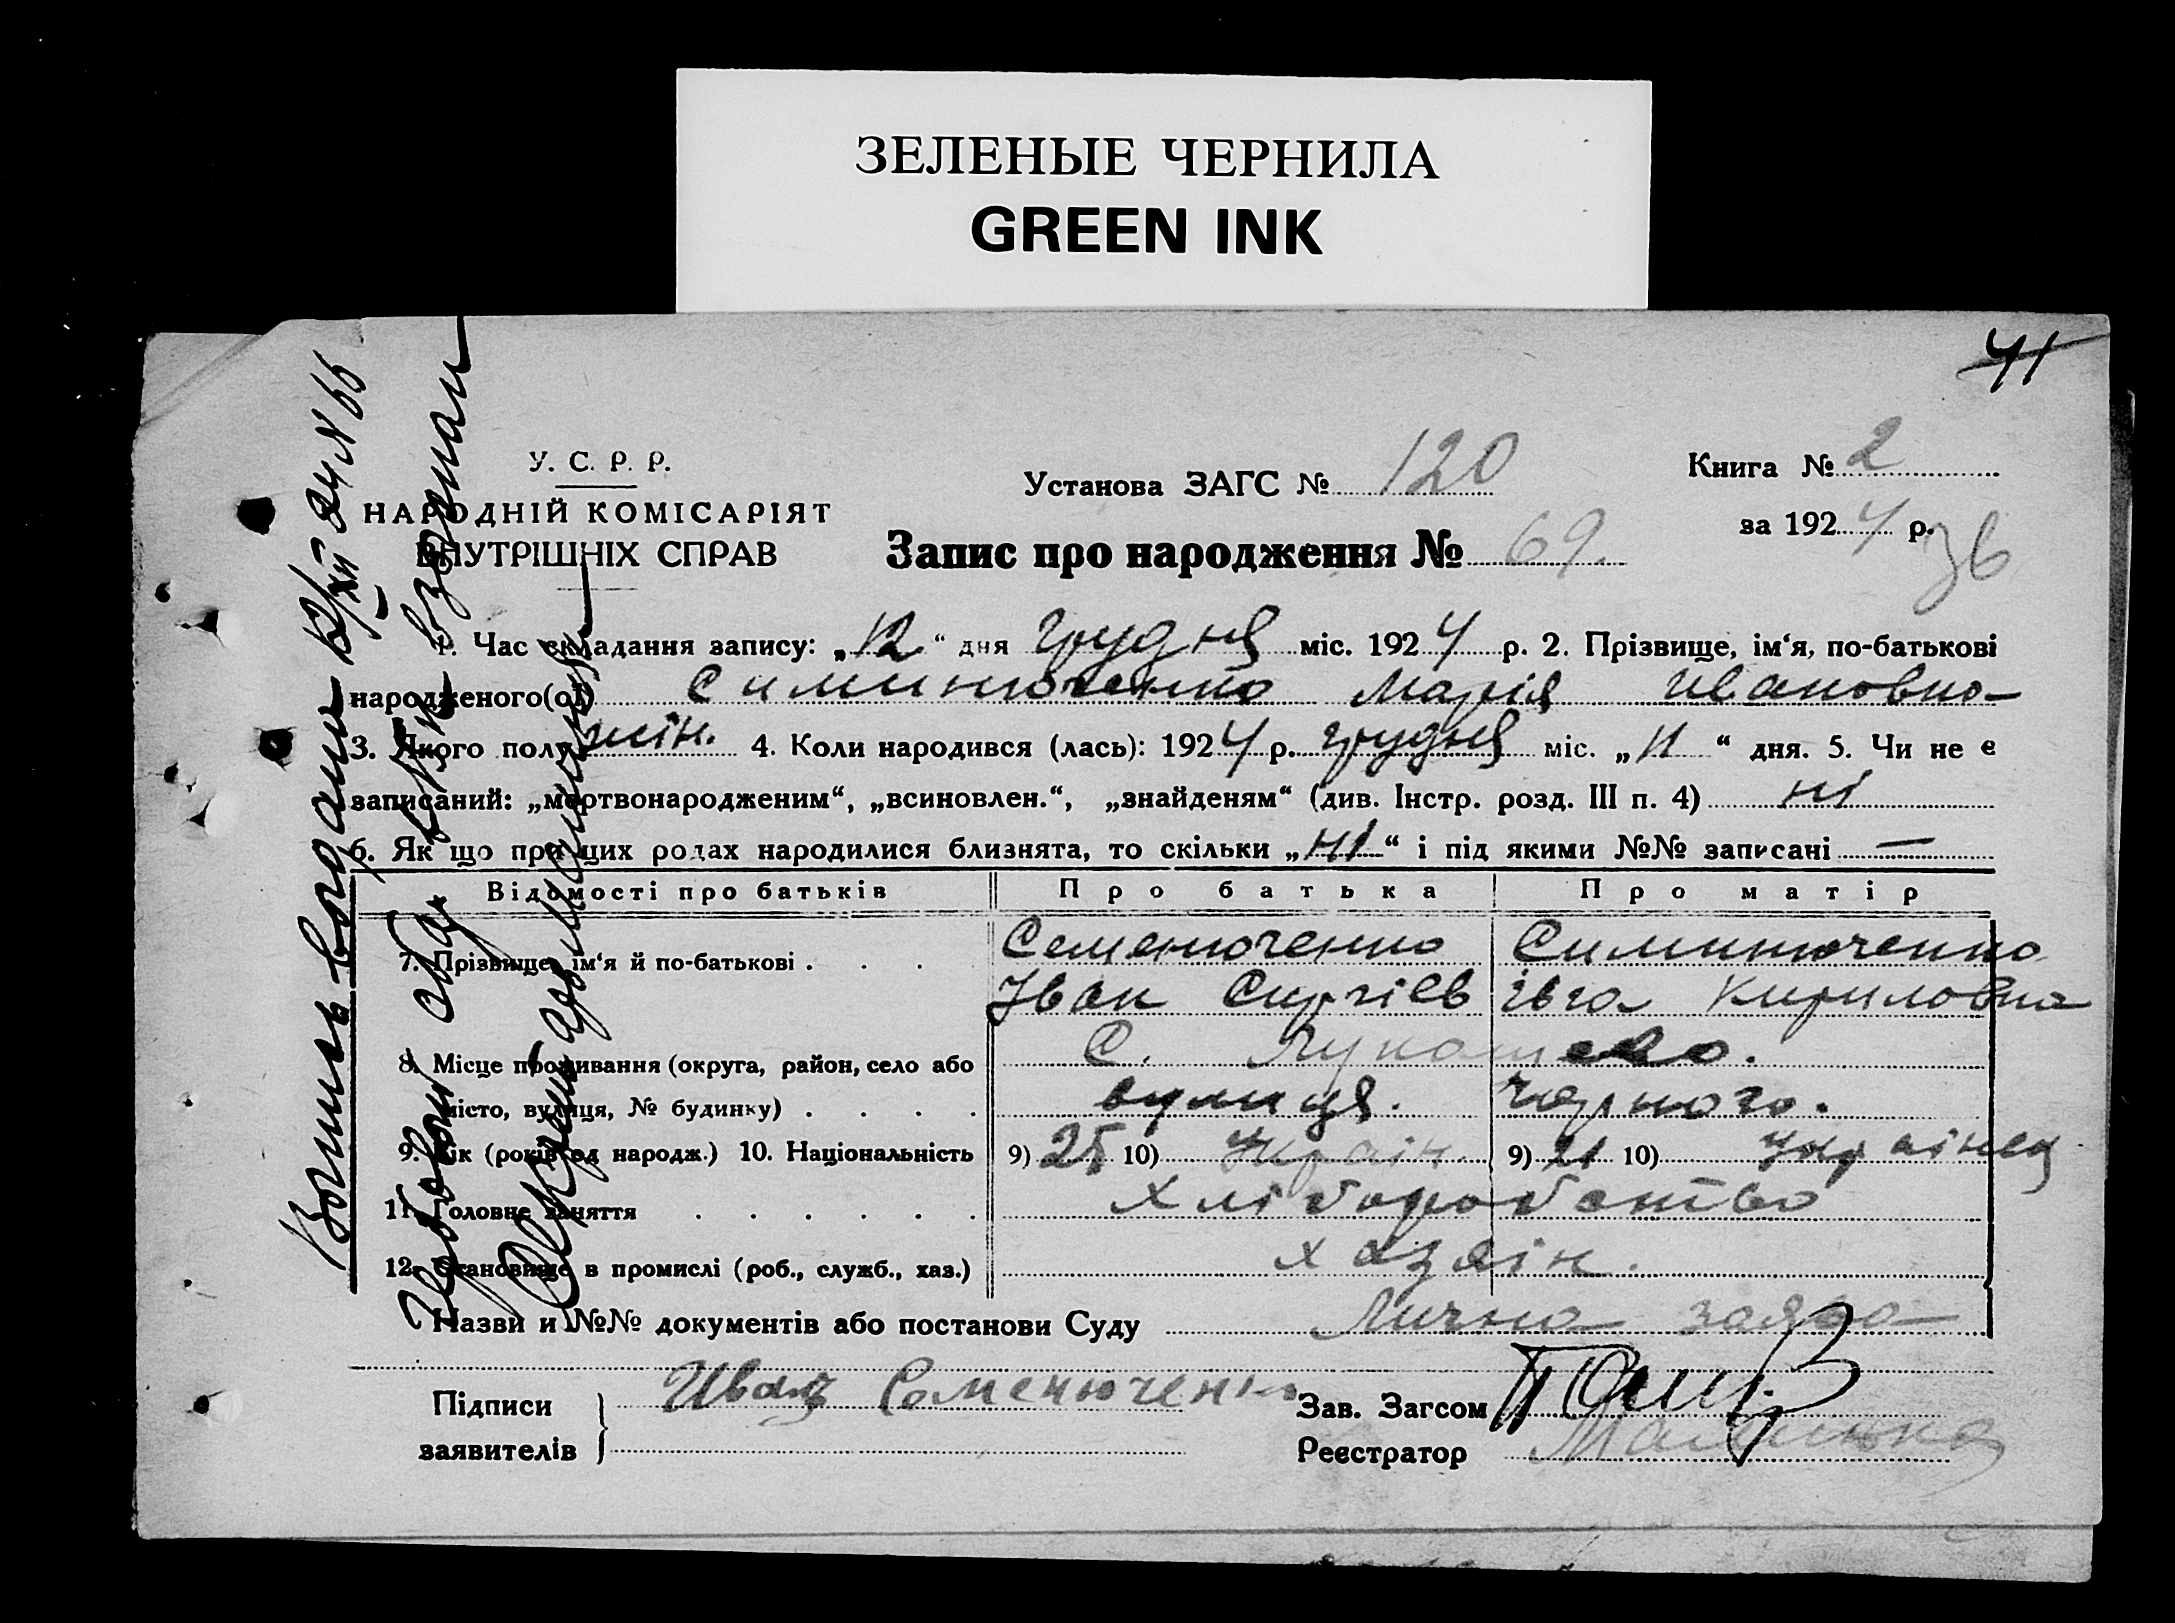 ЗЕЛЕНЫЕ ЧЕРНИЛА
GREEN INK
41
У. С. Р. Р.
НАРОДНІЙ КОМІСАРІЯТ
ВНУТРІШНІХ СПРАВ
Установа ЗАГС № 120
Книга № 2
за 1924 р.
36
Запис про народження № 69.
1. Час складання запису: „12“ дня грудня міс. 1924 р. 2. Прізвище, ім‘я, по-батькові
народженого(ої) Симинюченко Марія Ивановно
3. Якого полу жін. 4. Коли народився (лась): 1924 р. грудня міс. „11“ дня. 5. Чи не є
записаний: „мертвонародженим“, „всиновлен.“, „знайденям“ (див. Інстр. розд. III п. 4) ні
6. Як що при цих родах народилися близнята, то скільки „ні“ і під якими №№ записані —
Відомості про батьків Про батька Про матір
7. Прізвище, ім‘я й по-батькові . . . Семенюченко Симинюченко
Іван Сиргієв Івга Кириловна
8. Місце проживання (округа, район, село або С.
місто, вулиця, № будинку) . . . . вулиця. Чорного.
9. Вік (років од народж.) 10. Національність 9) 25 10) Украін. 9) 21 10) Украінец
11. Головне заняття . . . . . . Хліборобство
12. Становище в промислі (роб., служб., хаз.) хазяін.
Назви и №№ документів або постанови Суду Лична заява
Підписи Иван Семенюченко
заявителів
Зав. Загсом
Реєстратор